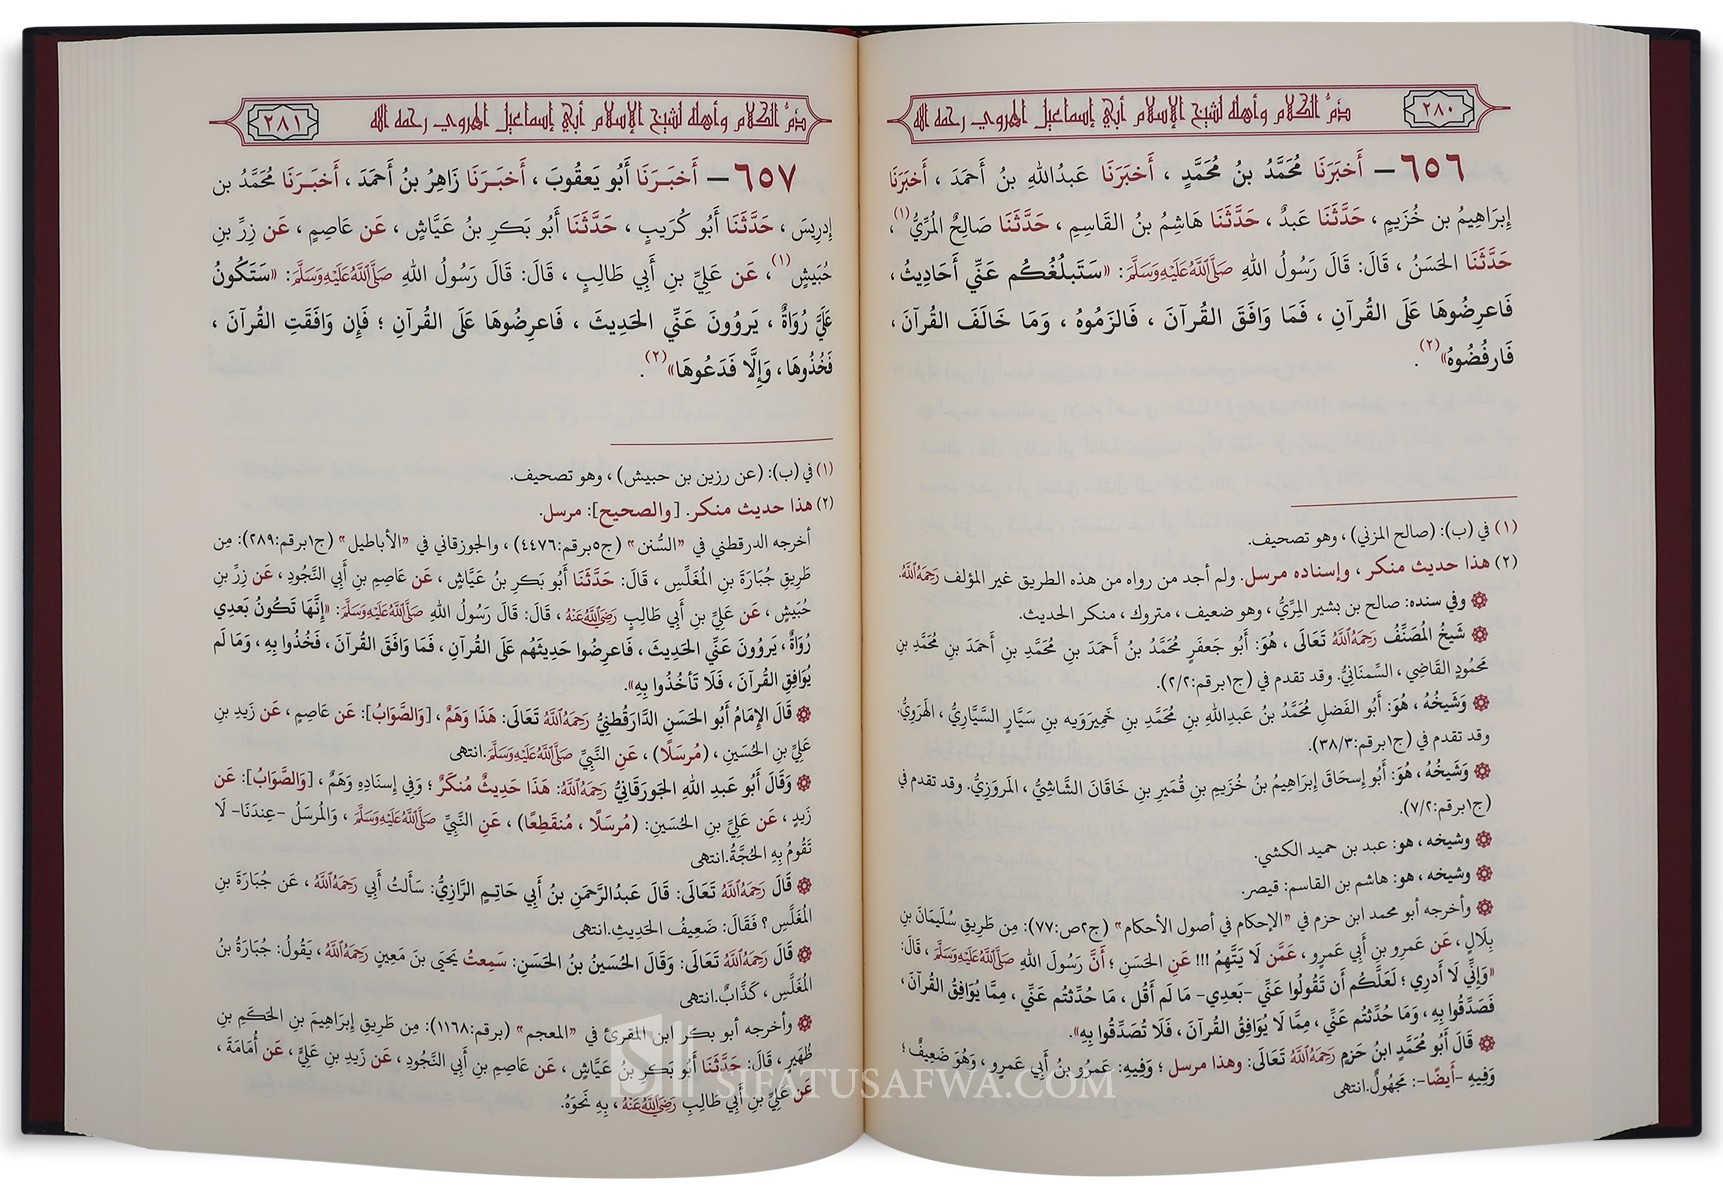 ذمُّ الكلام وأهله لشيخ الإسلام أبي إسماعيل الهروي رحمه الله
٢٨٠
٦٥٦ – أَخبَرَنَا مُحَمَّدُ بنُ مُحَمَّدٍ ، أَخبَرَنَا عَبدُاللهِ بنُ أَحمَدَ ، أَخبَرَنَا
إِبرَاهِيمُ بن خُزَيمٍ ، حَدَّثَنَا عَبدٌ ، حَدَّثَنَا هَاشِمُ بنُ القَاسِمِ ، حَدَّثَنَا صَالِحٌ المُرِّيُّ(١) ،
حَدَّثَنَا الحَسَنُ ، قَالَ: قَالَ رَسُولُ اللهِ صَلَّى اللَّهُ عَلَيْهِ وَسَلَّمَ: «سَتَبلُغُكُم عَنِّي أَحَادِيثُ ،
فَاعرِضُوهَا عَلَى القُرآنِ ، فَمَا وَافَقَ القُرآنَ ، فَالزَمُوهُ ، وَمَا خَالَفَ القُرآنَ ،
فَارفُضُوهُ»(٢) .
(١) في (ب): (صالح المزني) ، وهو تصحيف.
(٢) هذا حديث منكر ، وإسناده مرسل. ولم أجد من رواه من هذه الطريق غير المؤلف رَحِمَهُ اللَّهُ.
۞ وفي سنده: صالح بن بشير المِرِّيُّ ، وهو ضعيف ، متروك ، منكر الحديث.
۞ شَيخُ المُصَنِّفُ رَحِمَهُ اللَّهُ تَعَالَى ، هُوَ: أَبُو جَعفَرٍ مُحَمَّدُ بنُ أَحمَدَ بنِ مُحَمَّدِ بنِ أَحمَدَ بنِ مُحَمَّدِ بنِ
مَحمُودٍ القَاضِي ، السِّمنَانِيُّ. وقد تقدم في (ج١برقم:٢/٢).
۞ وَشَيخُهُ ، هُوَ: أَبُو الفَضلِ مُحَمَّدُ بنُ عَبدِاللهِ بنِ مُحَمَّدِ بنِ خَمِيرَوَيه بنِ سَيَّارٍ السَّيَّارِيُّ ، الهَرَوِيُّ.
وقد تقدم في (ج١برقم:٣٨/٣).
۞ وَشَيخُهُ ، هُوَ: أَبُو إِسحَاقَ إِبرَاهِيمُ بنُ خُزَيمِ بنِ قُمَيرِ بنِ خَاقَانَ الشَّاشِيُّ ، المَروَزِيُّ. وقد تقدم في
(ج١برقم:٧/٢).
۞ وشيخه ، هو: عبد بن حميد الكشي.
۞ وشيخه ، هو: هاشم بن القاسم: قيصر.
۞ وأخرجه أبو محمد ابن حزم في "الإحكام في أصول الأحكام" (ج٢ص:٧٧): مِن طَرِيقِ سُلَيمَانَ بنِ
بِلَالٍ ، عَن عَمرِو بنِ أَبِي عَمرٍو ، عَمَّن لَا يَتَّهِمُ !!! عَنِ الحَسَنِ ؛ أَنَّ رَسُولَ اللهِ صَلَّى اللَّهُ عَلَيْهِ وَسَلَّمَ ، قَالَ:
«وَإِنِّي لَا أَدرِي ؛ لَعَلَّكُم أَن تَقُولُوا عَنِّي -بَعدِي- مَا لَم أَقُل ، مَا حُدِّثتُم عَنِّي ، مِمَّا يُوَافِقُ القُرآنَ ،
فَصَدِّقُوا بِهِ ، وَمَا حُدِّثتُم عَنِّي ، مِمَّا لَا يُوَافِقُ القُرآنَ ، فَلَا تُصَدِّقُوا بِهِ».
۞ قَالَ أَبُو مُحَمَّدٍ ابنُ حَزمٍ رَحِمَهُ اللَّهُ تَعَالَى: وهذا مرسل ؛ وَفِيهِ: عَمرُو بنُ أَبِي عَمرٍو ، وَهُوَ ضَعِيفٌ ؛
وَفِيهِ -أَيضًا-: مَجهُولٌ.انتهى
ذمُّ الكلام وأهله لشيخ الإسلام أبي إسماعيل الهروي رحمه الله
٢٨١
٦٥٧ – أَخبَرَنَا أَبُو يَعقُوبَ ، أَخبَرَنَا زَاهِرُ بنُ أَحمَدَ ، أَخبَرَنَا مُحَمَّدُ بن
إِدرِيسَ ، حَدَّثَنَا أَبُو كُرَيبٍ ، حَدَّثَنَا أَبُو بَكرِ بنُ عَيَّاشٍ ، عَن عَاصِمٍ ، عَن زِرِّ بنِ
حُبَيشٍ(١) ، عَن عَلِيِّ بنِ أَبِي طَالِبٍ ، قَالَ: قَالَ رَسُولُ اللهِ صَلَّى اللَّهُ عَلَيْهِ وَسَلَّمَ: «سَتَكُونُ
عَلَيَّ رُوَاةٌ ، يَروُونَ عَنِّي الحَدِيثَ ، فَاعرِضُوهَا عَلَى القُرآنِ ؛ فَإِن وَافَقَتِ القُرآنَ ،
فَخُذُوهَا ، وَإِلَّا فَدَعُوهَا»(٢) .
(١) في (ب): (عن رزين بن حبيش) ، وهو تصحيف.
(٢) هذا حديث منكر. [والصحيح]: مرسل.
أخرجه الدرقطني في "السُّنن" (ج٥برقم:٤٤٧٦) ، والجوزقاني في "الأباطيل" (ج١برقم:٢٨٩): مِن
طَرِيقِ جُبَارَةَ بنِ المُغَلِّسِ ، قَالَ: حَدَّثَنَا أَبُو بَكرِ بنُ عَيَّاشٍ ، عَن عَاصِمِ بنِ أَبِي النَّجُودِ ، عَن زِرِّ بنِ
حُبَيشٍ ، عَن عَلِيِّ بنِ أَبِي طَالِبٍ رَضِيَ اللَّهُ عَنْهُ ، قَالَ: قَالَ رَسُولُ اللهِ صَلَّى اللَّهُ عَلَيْهِ وَسَلَّمَ: «إِنَّهَا تَكُونُ بَعدِي
رُوَاةٌ ، يَروُونَ عَنِّي الحَدِيثَ ، فَاعرِضُوا حَدِيثَهُم عَلَى القُرآنِ ، فَمَا وَافَقَ القُرآنَ ، فَخُذُوا بِهِ ، وَمَا لَم
يُوَافِقِ القُرآنَ ، فَلَا تَأخُذُوا بِهِ».
۞ قَالَ الإِمَامُ أَبُو الحَسَنِ الدَّارَقُطنِيُّ رَحِمَهُ اللَّهُ تَعَالَى: هَذَا وَهَمٌ ، [وَالصَّوَابُ]: عَن عَاصِمٍ ، عَن زَيدِ بنِ
عَلِيِّ بنِ الحُسَينِ ، (مُرسَلًا) ، عَنِ النَّبِيِّ صَلَّى اللَّهُ عَلَيْهِ وَسَلَّمَ.انتهى
۞ وَقَالَ أَبُو عَبدِ اللهِ الجَورَقَانِيُّ رَحِمَهُ اللَّهُ: هَذَا حَدِيثٌ مُنكَرٌ ؛ وَفِي إِسنَادِهِ وَهَمٌ ، [وَالصَّوَابُ]: عَن
زَيدٍ ، عَن عَلِيِّ بنِ الحُسَينِ: (مُرسَلًا ، مُنقَطِعًا) ، عَنِ النَّبِيِّ صَلَّى اللَّهُ عَلَيْهِ وَسَلَّمَ ، وَالمُرسَلُ -عِندَنَا- لَا
تَقُومُ بِهِ الحُجَّةُ.انتهى
۞ قَالَ رَحِمَهُ اللَّهُ تَعَالَى: قَالَ عَبدُالرَّحمَنِ بنُ أَبِي حَاتِمٍ الرَّازِيُّ: سَأَلتُ أَبِي رَحِمَهُ اللَّهُ ، عَن جُبَارَةَ بنِ
المُغَلِّسِ ؟ فَقَالَ: ضَعِيفُ الحَدِيثِ.انتهى
۞ قَالَ رَحِمَهُ اللَّهُ تَعَالَى: وَقَالَ الحُسَينُ بنُ الحَسَنِ: سَمِعتُ يَحيَى بنَ مَعِينٍ رَحِمَهُ اللَّهُ ، يَقُولُ: جُبَارَةُ بنُ
المُغَلِّسِ ، كَذَّابٌ.انتهى
۞ وأخرجه أبو بكر ابن المقرئ في "المعجم" (برقم:١١٦٨): مِن طَرِيقِ إِبرَاهِيمَ بنِ الحَكَمِ بنِ
ظُهَيرٍ ، قَالَ: حَدَّثَنَا أَبُو بَكرِ بنُ عَيَّاشٍ ، عَن عَاصِمِ بنِ أَبِي النَّجُودِ ، عَن زَيدِ بنِ عَلِيٍّ ، عَن أُمَامَةَ ،
عَن عَلِيِّ بنِ أَبِي طَالِبٍ رَضِيَ اللَّهُ عَنْهُ ، بِهِ نَحوَهُ.
SIFATUSAFWA.COM